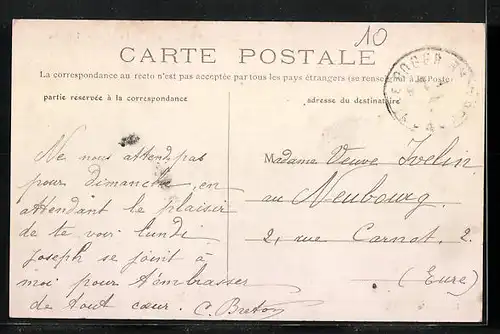 10
CARTE POSTALE
La correspondance au recto n'est pas acceptée par tous les pays étrangers (se renseigner à la Poste)
partie reservée à la correspondance
adresse du destinataire
Ne nous attend pas
pour dimanche, en
attendant le plaisir
de te voir lundi
Joseph se joint à
moi pour t'embrasser
de tout cœur. C. Breton
Madame Veuve Ivelin
au Neubourg.
2, rue Carnot, 2.
(Eure)